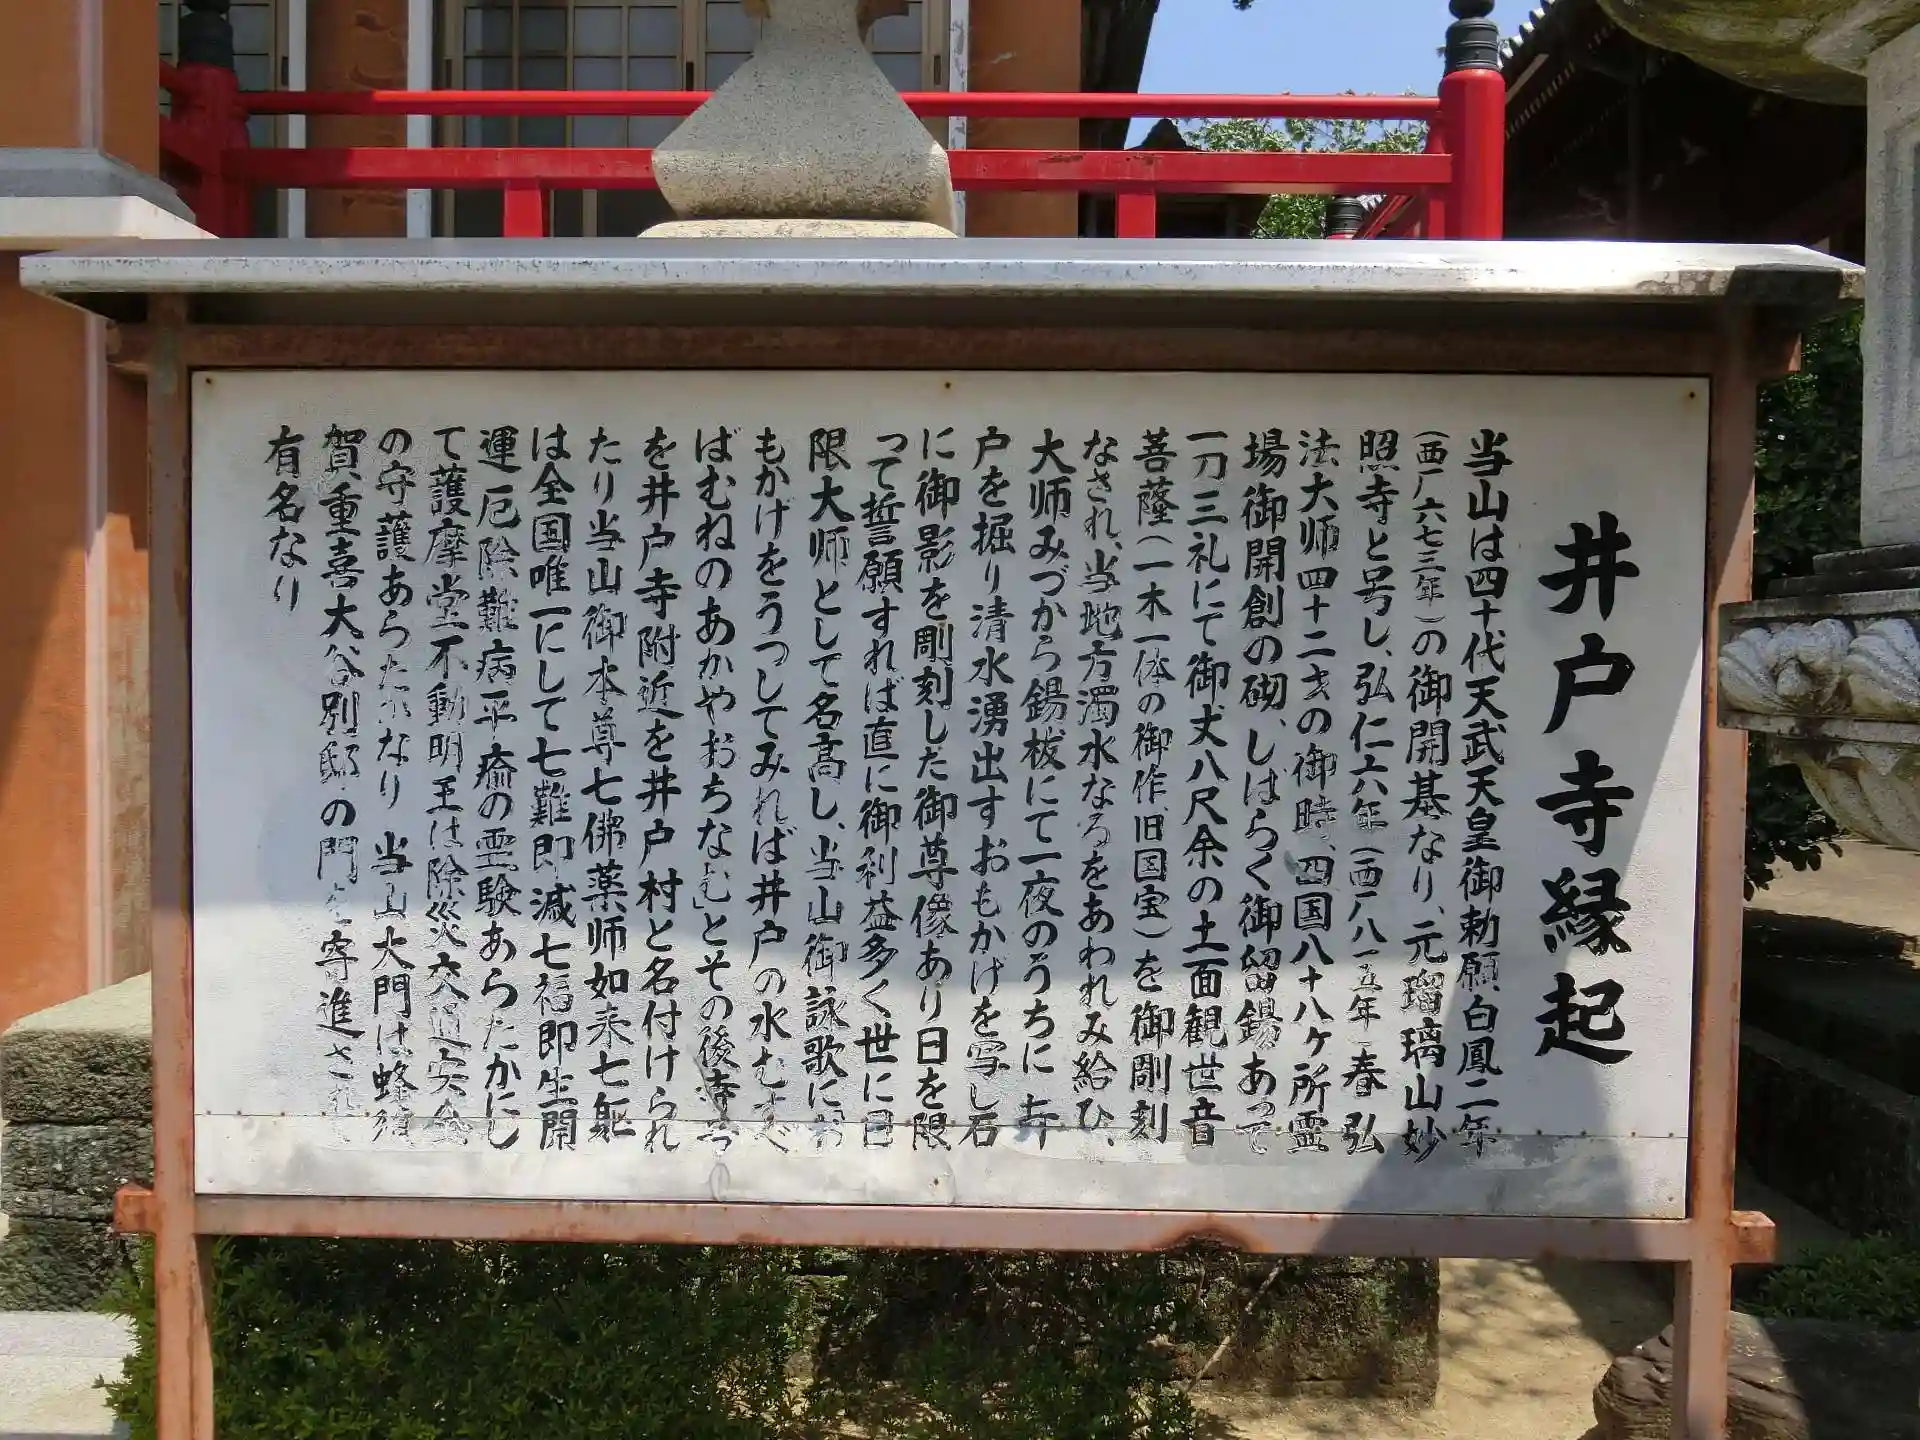 井戸寺縁起
当山は四十代天武天皇御勅願、白鳳二年
(西广六七三年)の御開基なり、元瑠璃山妙
照寺と号し、弘仁六年(西广八一五年)春弘
法大师四十二才の御時、四国八十八ヶ所霊
場御開創の砌、しばらく御留錫あって
一刀三礼にて御丈八尺余の十一面観世音
菩薩(一木一体の御作、旧国宝)を御剛刻
なされ、当地方濁水なるをあわれみ給ひ、
大师みづから錫杖にて一夜のうちに寺
戸を掘り清水湧出すおもかげを写し石
に御影を剛刻した御尊像あり日を限
って誓願すれば直に御利益多く世に日
限大师として名高し、当山御詠歌にお
もかげをうつしてみれば井戸の水むすべ
ばむねのあかやおちなむ」とその後寺号
を井戸寺附近を井戸村と名付けられ
たり当山御本尊七佛薬师如来七躯
は全国唯一にして七難即滅七福即生開
運厄除難病平癒の霊験あらたかにし
て護摩堂不動明王は除災交通安全
の守護あらたかなり 当山大門は蜂須
賀重喜大谷別邸の門を寄進されて
有名なり